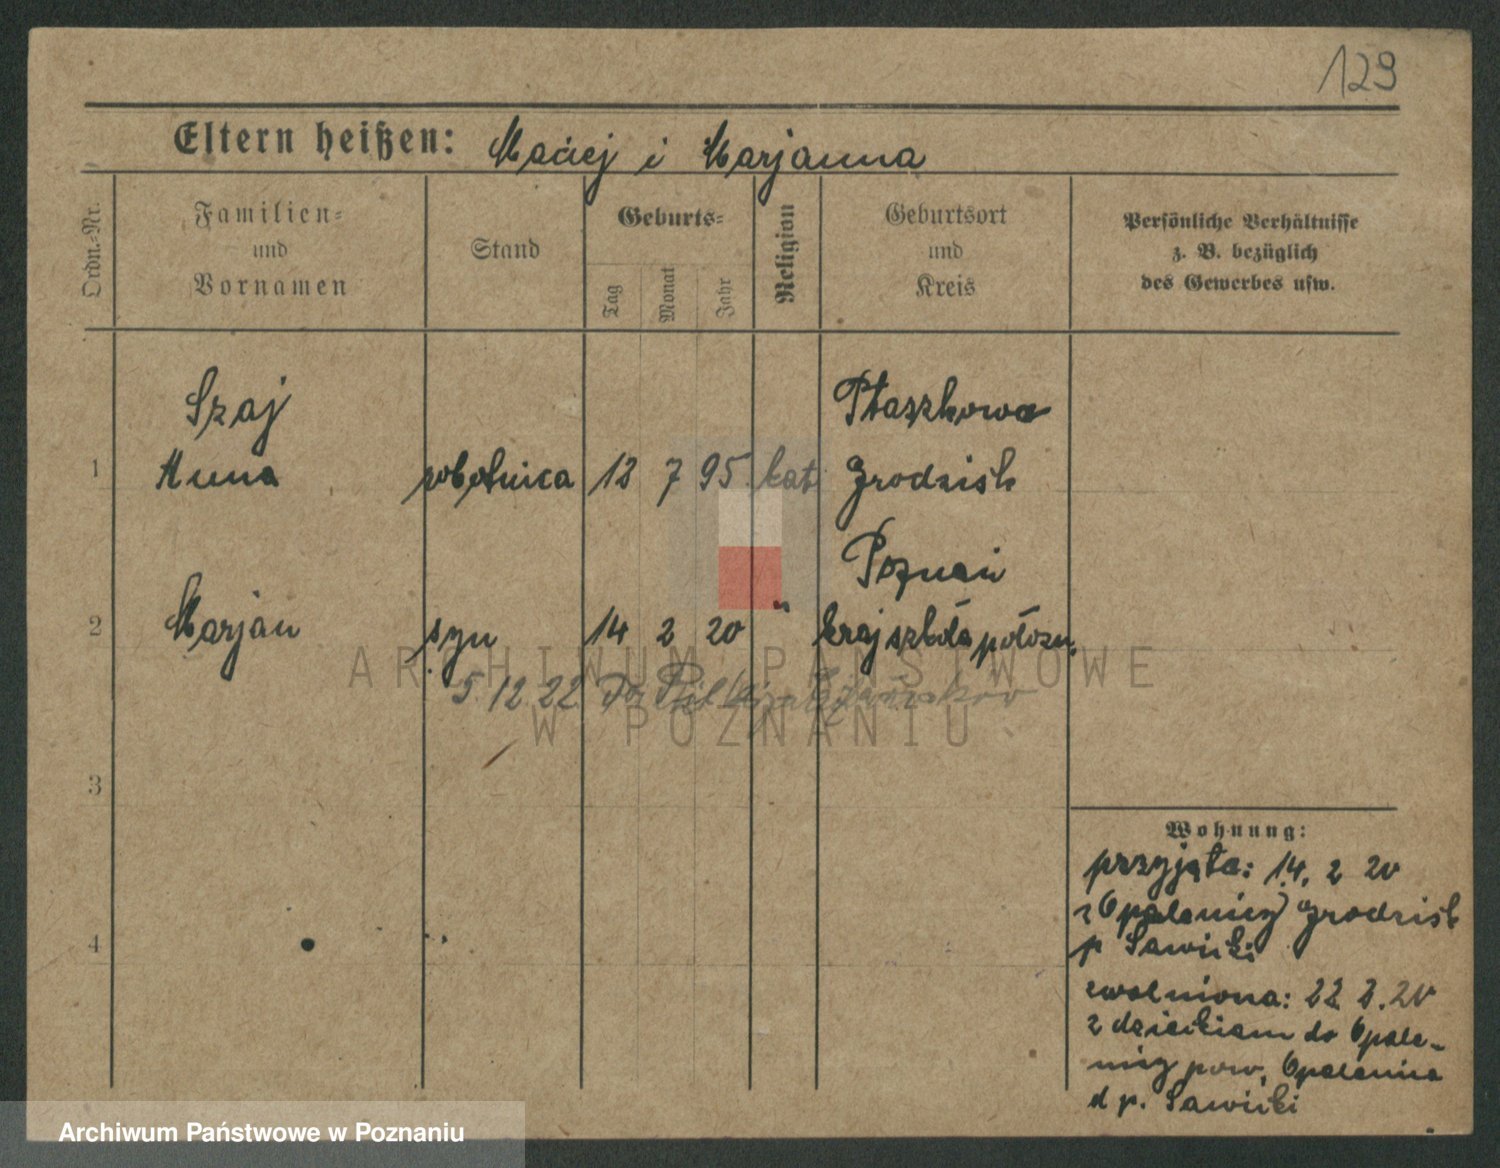 129
Eltern heißen: Maciej i Marjanna
Ordn.-Nr.
Familien-
und
Vornamen
Stand
Geburts-
Tag
Monat
Jahr
Religion
Geburtsort
und
Kreis
Persönliche Verhältnisse
z. B. bezüglich
des Gewerbes usw.
Szaj
Ptaszkowo
1 Anna robotnica 12 7 95 kat Grodzisk
Poznań
2 Marjan syn 14 2 20 " kraj szkoła położn.
5 12 22
ARCHIWUM PAŃSTWOWE
W POZNANIU
3
4
Wohnung:
przyjęta: 14. 2 20
z Opalenicy Grodzisk
p Sawicki
zwolniona: 22. 2. 20
z dzieckiem do Opale-
nicy pow. Opalenica
d p. Sawicki
Archiwum Państwowe w Poznaniu